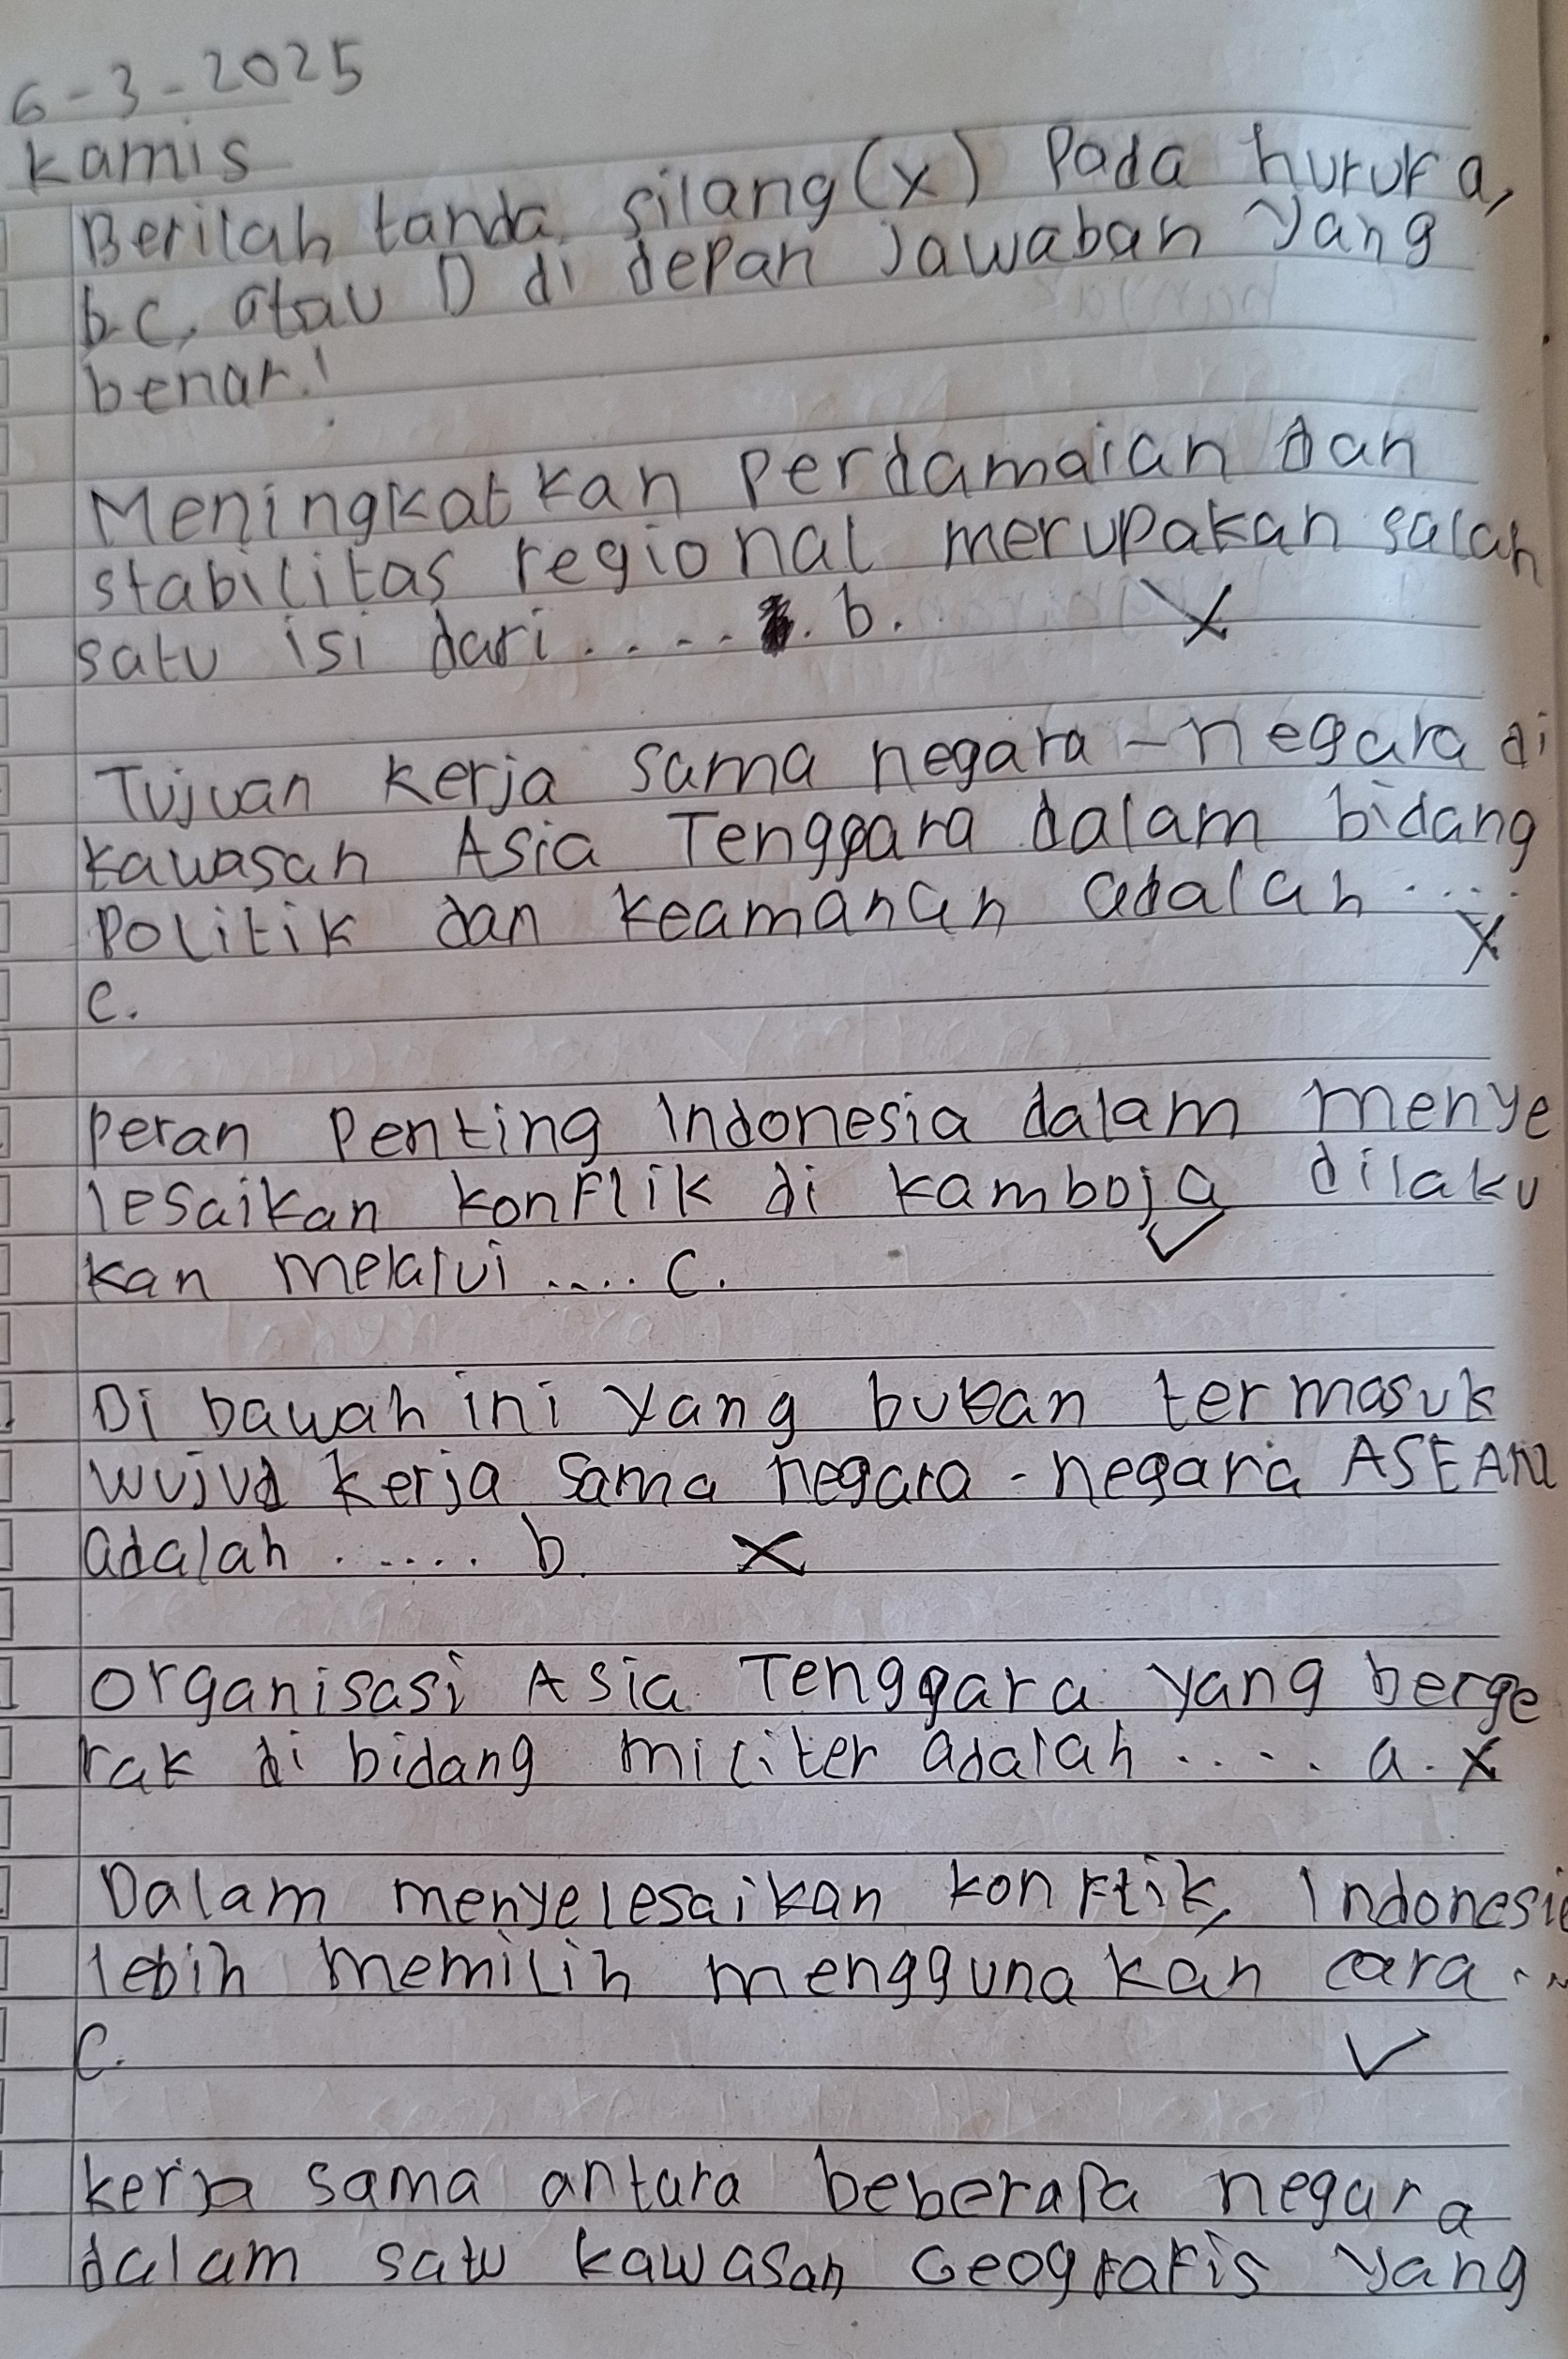 6-3-2025
Kamis
Berilah tanda silang (x) Pada huruf a,
b c, atau D di depan Jawaban yang
benar!
Meningkatkan Perdamaian dan
stabilitas regional merupakan salah
satu isi dari..... b. X
Tujuan kerja sama negara-negara di
kawasan Asia Tenggara dalam bidang
Politik dan keamanan adalah ..... X
C.
Peran Penting Indonesia dalam menye
lesaikan konflik di kamboja dilaku
kan melalui .... C. ✓
Di bawah ini yang bukan termasuk
wujud kerja sama negara-negara ASEAN
adalah ...... b. X
Organisasi Asia Tenggara yang berge
rak di bidang militer adalah .... a. X
Dalam menyelesaikan konflik, Indonesia
lebih memilih menggunakan cara ...
C. ✓
kerja sama antara beberapa negara
dalam satu kawasan Geografis yang